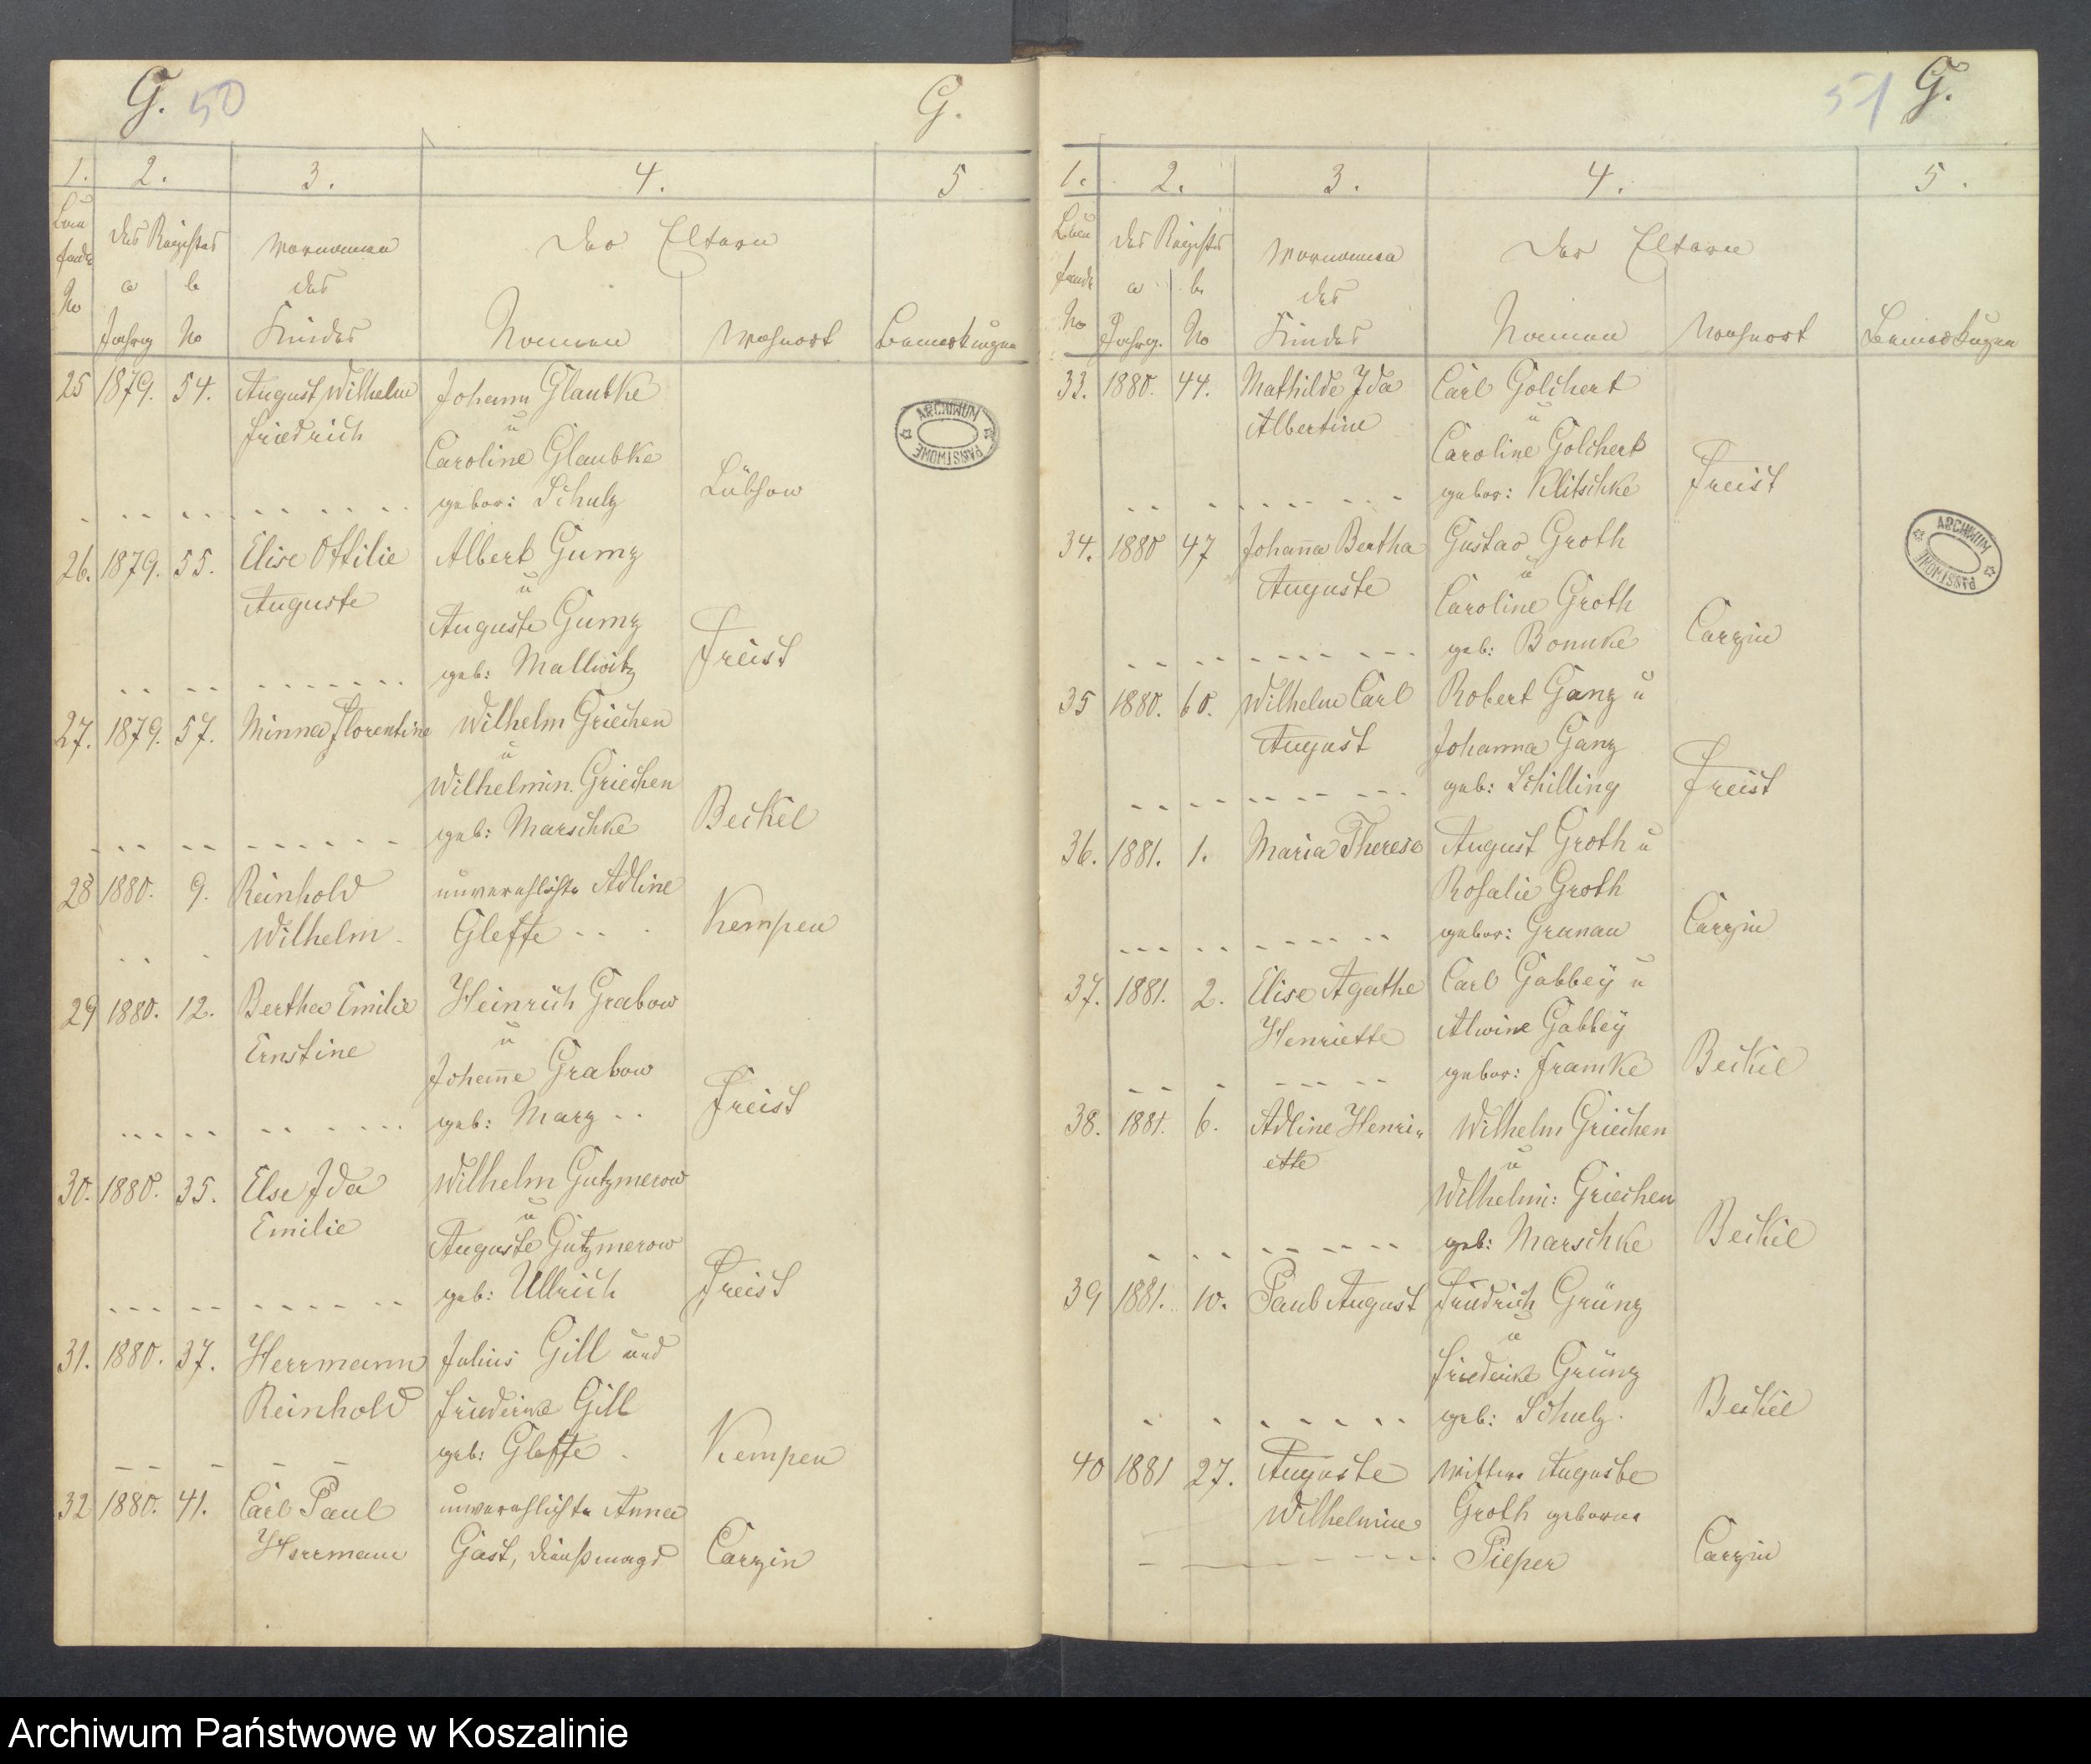 G. 50
G.
1. 2. 3. 4. 5
Laufende No
des Registers
a Jahrg
b No
Vornamen
des
Kindes
Der Eltern
Namen
Wohnort
Bemerkungen
25 1879. 54. August Wilhelm Johann Glaubke
Friedrich u
Caroline Glaubke
gebor: Schulz Lübsow
26. 1879. 55. Elise Ottilie Albert Gumz
Auguste u
Auguste Gumz
geb: Mallwitz Freist
27. 1879. 57. Minna Florentine Wilhelm Griechen
u
Wilhelmin. Griechen
geb: Marschke Beckel
28 1880. 9. Reinhold unverehlichte Adline
Wilhelm Gleffe Kempen
29 1880. 12. Bertha Emilie Heinrich Grabow
Ernstine u
Johan̄e Grabow
geb: Marz Freist
30. 1880. 35. Else Ida Wilhelm Gutzmerow
Emilie u
Auguste Gutzmerow
geb: Ullrich Freist
31. 1880. 37. Herrmann Julius Gill und
Reinhold Friederike Gill
geb: Gleffe Kempen
32 1880. 41. Carl Paul unverehlichte Anna
Herrmann Gast, Dienstmagd Carzin
ARCHIWUM PAŃSTWOWE
51 G.
1. 2. 3. 4. 5.
Laufende No
des Registers
a Jahrg.
b No
Vornamen
des
Kindes
Der Eltern
Namen
Wohnort
Bemerkungen
33. 1880. 44. Mathilde Ida Carl Golchert
Albertine u
Caroline Golchert
gebor: Klitschke Freist
34. 1880 47 Johan̄a Bertha Gustav Groth
Auguste u
Caroline Groth
geb: Bonnke Carzin
35 1880. 60. Wilhelm Carl Robert Ganz u
August Johanna Ganz
geb: Schilling Freist
36. 1881. 1. Maria Therese August Groth u
Rosalie Groth
gebor: Grunau Carzin
37. 1881. 2. Elise Agathe Carl Gabbey u
Henriette Alwine Gabbey
gebor: Framke Beckel
38. 1881. 6. Adline Henri-
ette Wilhelm Griechen
u
Wilhelmi: Griechen
geb: Marschke Beckel
39 1881. 10. Paul August Friedrich Grünz
u
Friederike Grünz
geb: Schulz. Beckel
40 1881 27. Auguste Wittwe Auguste
Wilhelmine Groth geborne
Pieper Carzin
ARCHIWUM PAŃSTWOWE
Archiwum Państwowe w Koszalinie